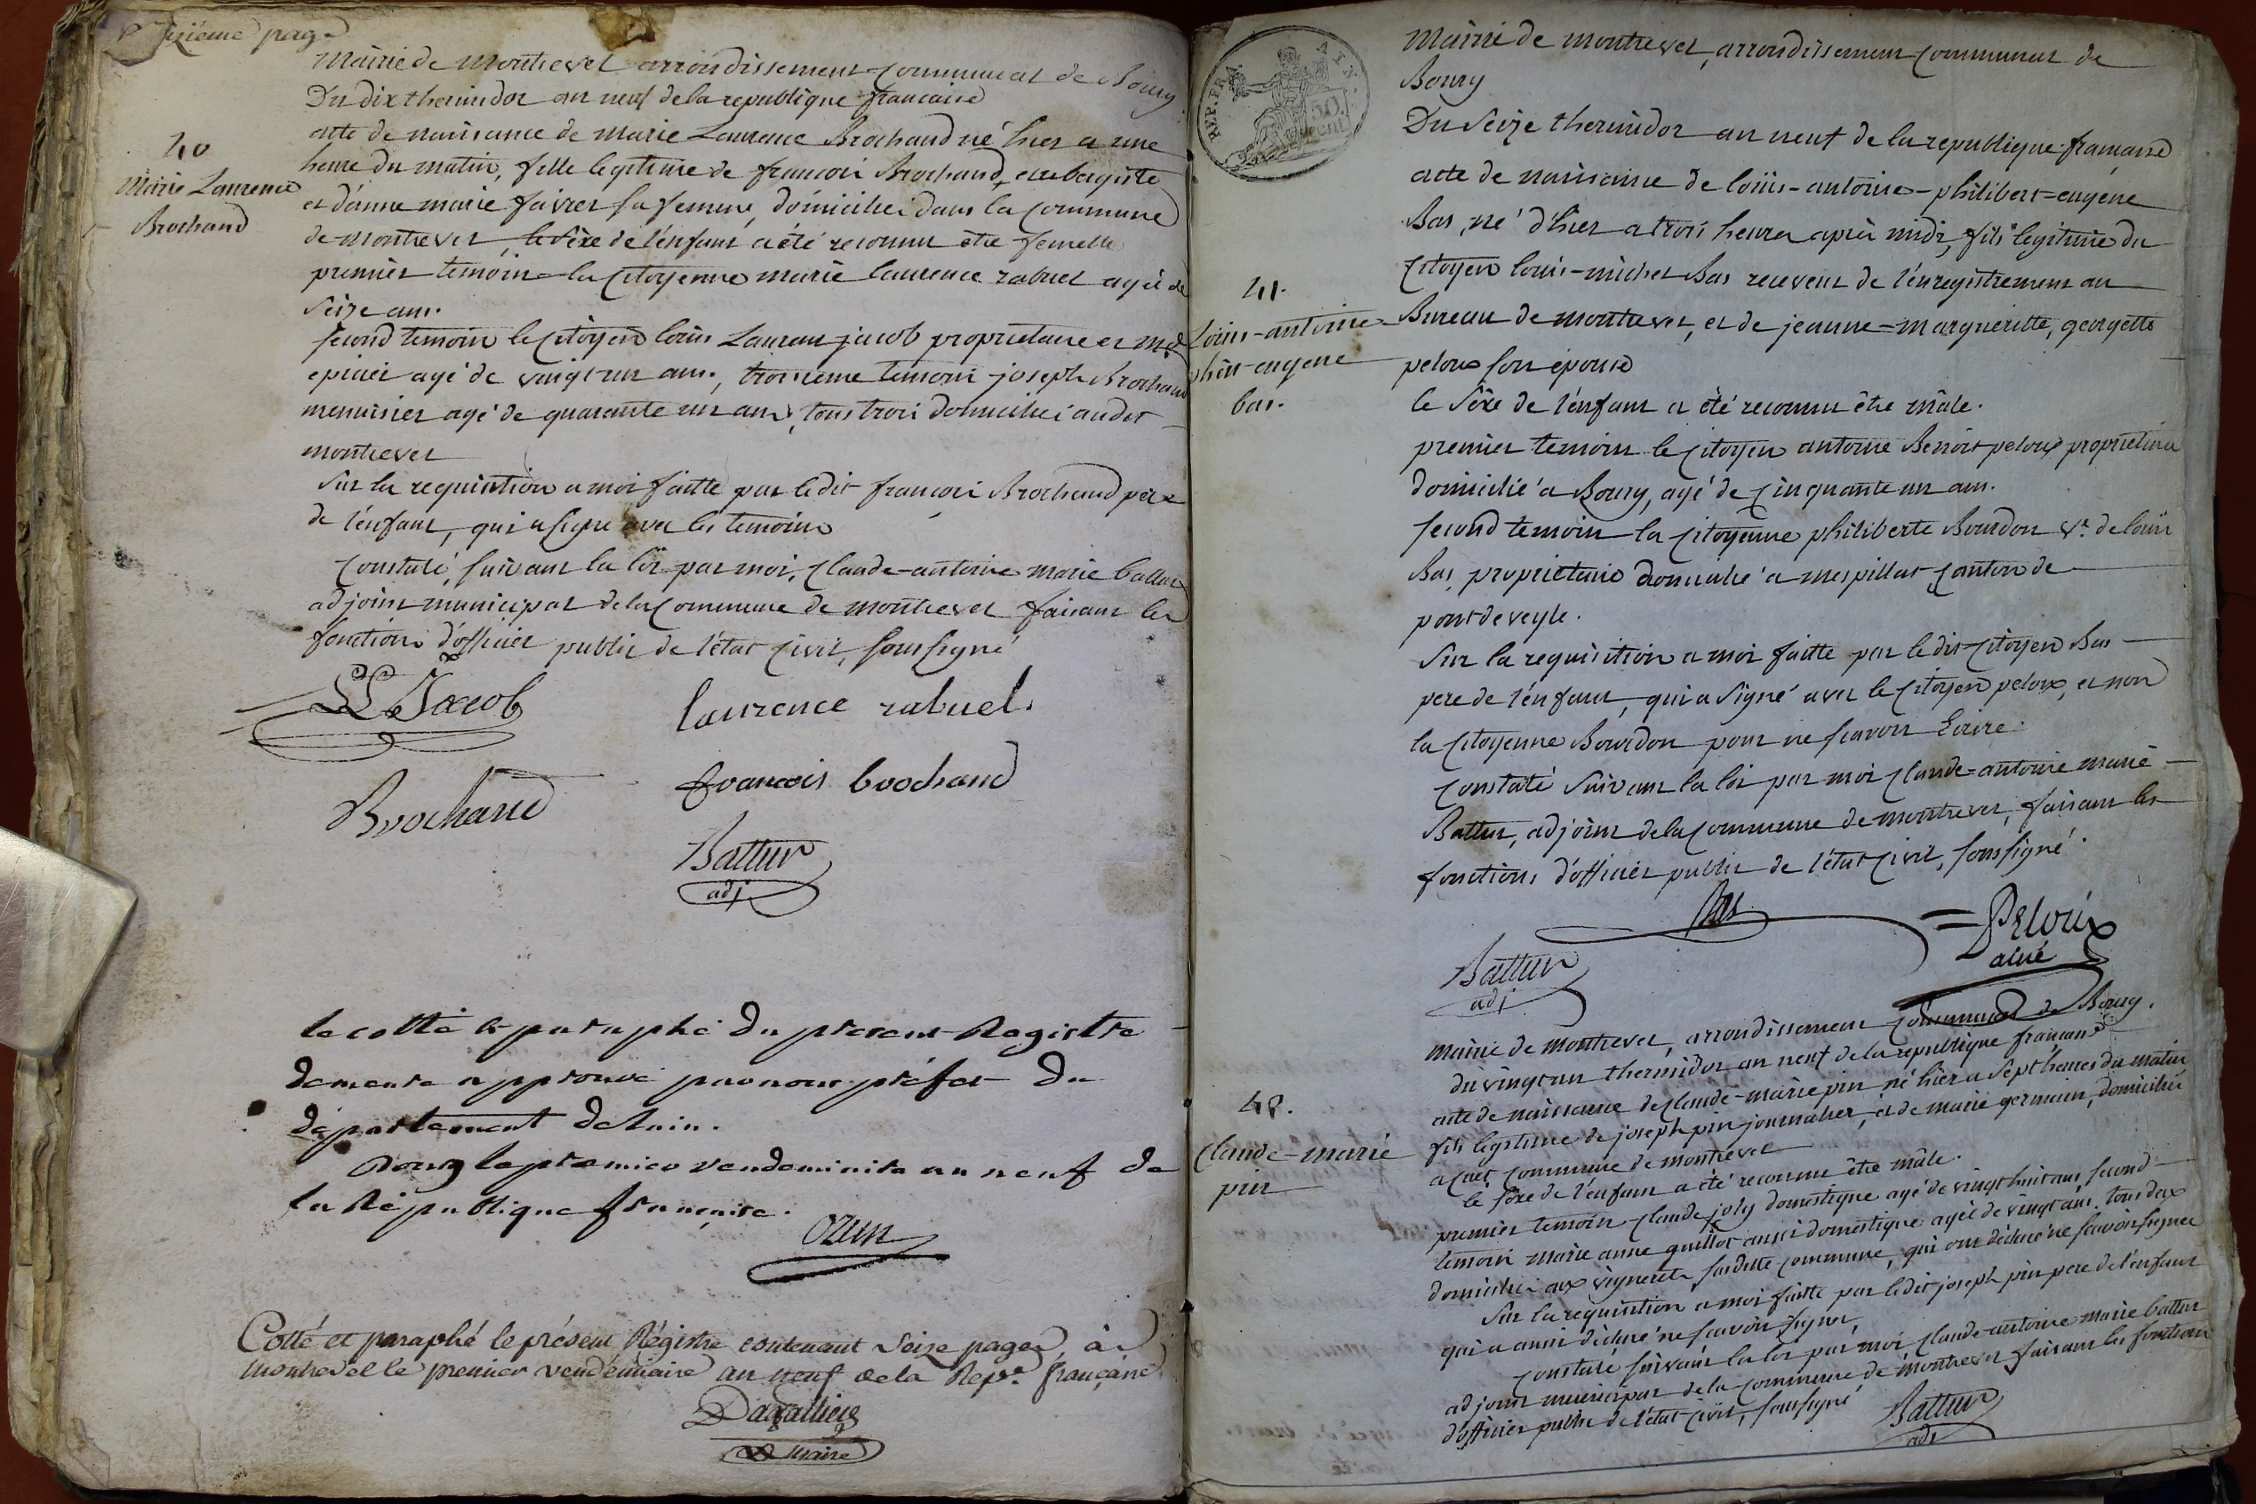 Sizième page
Mairie de Montrevel arrondissement Communal de Bourg
Du dix thermidor an neuf de la republique francaise
acte de naissance de marie Laurence Brochand né hier a une
heure du matin, fille legitime de francois Brochand,
et d'anne marie faivre sa femme, domicilié dans la Commune
de montrevel le sexe de l'enfant a été reconnu être femelle
premier temoin la Citoyenne marie laurence rabuel agée de
Seize ans.
second temoin le Citoyen louis Laurent jacob proprietaire et md
epicier agé de vingt un ans, troisieme temoin joseph Brochand
menuisier agé de quarante un ans, tous trois domiciliés audit
montrevel
Sur la requisition a moi faitte par ledit françois Brochand père
de l'enfant, qui a signé avec les temoins
Constaté, suivant la loi par moi, Claude-antoine marie battur
adjoint municipal de la Commune de montrevel faisant les
fonctions d'officier public de l'état Civil, soussigné
40
Marie Laurence
Brochand
LL Jacob
laurence rabuel
francois brochand
Brochand
Battur
adj
le cotté et paraphé du present Registre
demeure approuvé par nous préfet Du
département de L'ain.
Bourg le premier vendemiaire an neuf de
la République française.
Ozun
Cotté et paraphé le présent Régistre contenant Seize pages, à
Montrevel le premier vendémiaire an neuf de la Repe. française
Dagallier
Maire
REP. FRA.
50
Mairie de montrevel, arrondissement Communal de
Bourg
Du Seize thermidor an neuf de la republique française
acte de naissance de loüis-antoine-philibert-eugéne
Bas, né d'hier a trois heures après midi, fils legitime du
Citoyen louis-michel Bas receveur de l'énregistrement au
Bureau de montrevel, et de jeanne-marguerite, georgette
peloux son épouse
le Sexe de l'énfant a été reconnu être mâle.
premier temoin le Citoyen antoine Benoit peloux proprietaire
domicilié a Bourg, agé de Cinquante un ans.
second temoin la Citoyenne philiberte Bourdon Ve. de loüis
Bas, proprietaire domicilié a mespillat Canton de
pont de veyle.
Sur la requisition a moi faitte par ledit Citoyen Bas
pere de l'enfant, qui a signé avec le Citoyen peloux, et non
la Citoyenne Bourdon pour ne scavoir Ecrire.
Constaté suivant la loi par moi Claude-antoine marie
Battur, adjoint de la Commune de montrevel, faisant les
fonctions d'officier public de l'état Civil, soussigné.
41.
Loüis-antoine
phibt-eugene
bas.
Bas
Peloux
ainé
Battur
adj
Mairie de montrevel, arrondissement Communal de Bourg.
du vingt un thermidor an neuf de la republique française
acte de naissance de Claude-marie pin né hier a Sept heures du matin
fils legitime de joseph pin journalier, et de marie germain, domicilié
a Cuet Commune de montrevel
le Sexe de l'énfant a été reconnu être mâle.
premier temoin Claude joly domestique agé de vingt huit ans, second
temoin marie anne guillot aussi domestique agée de vingt ans. tous deux
domiciliés aux vignerets susditte Commune, qui ont déclaré ne scavoir signer
Sur la requisition a moi faitte par ledit joseph pin pere de l'énfant
qui a aussi déclaré ne scavoir signer
Constaté suivant la loi par moi, Claude-antoine marie battur
adjoint municipal de la Commune de montrevel faisant les fonctions
d'officier public de l'état Civil, soussigné
42.
Claude-marie
pin
Battur
adj